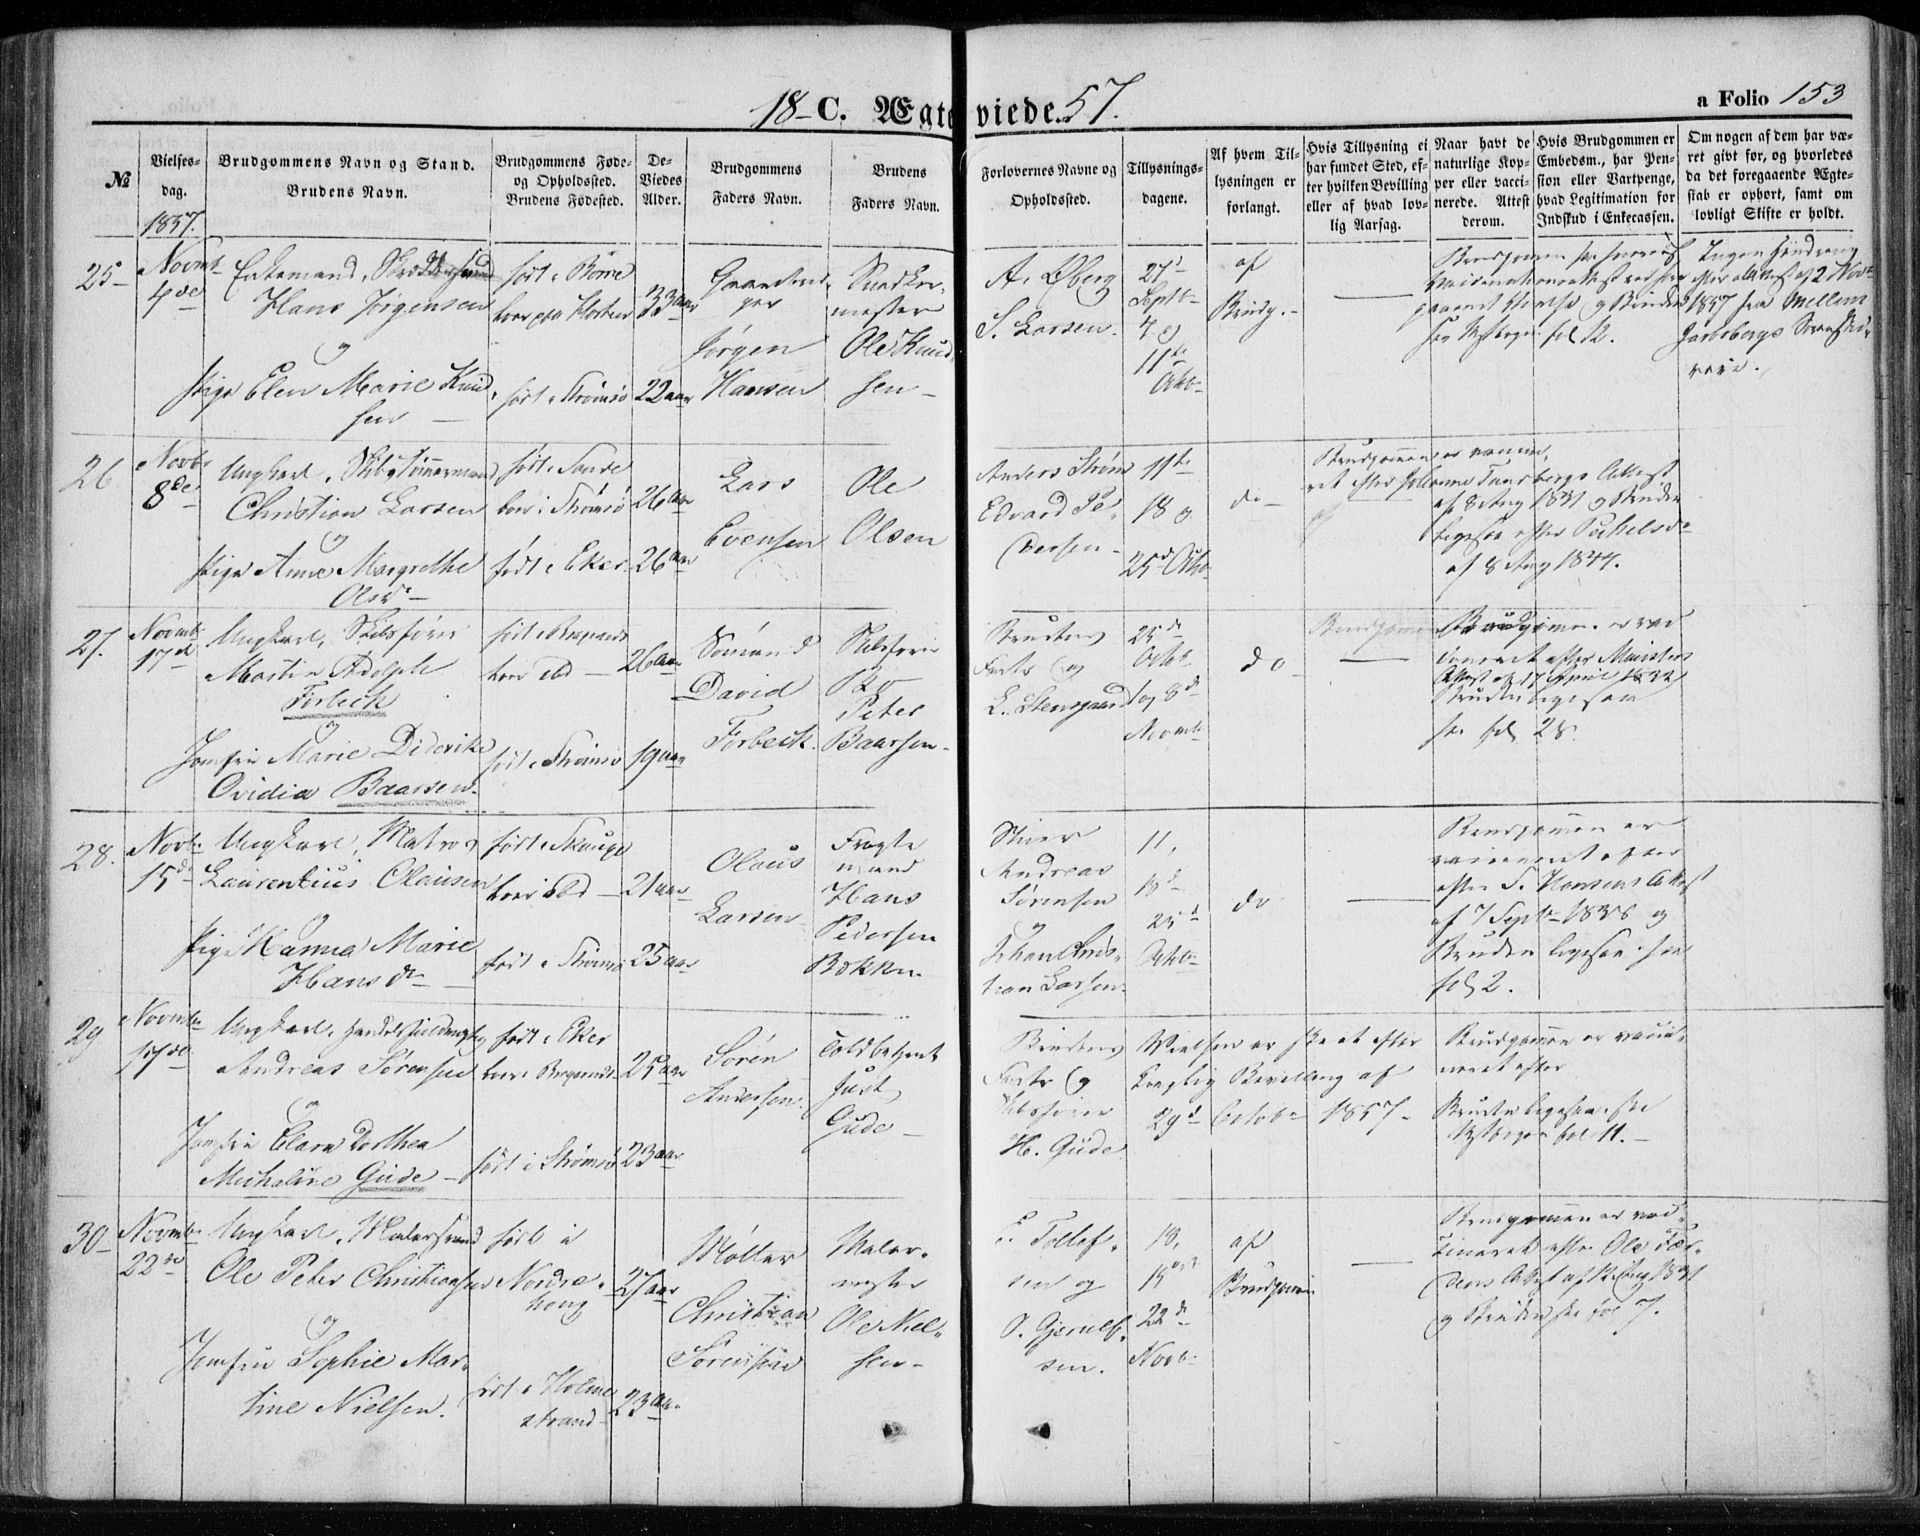 18 C. Ægteviede. 57.
a Folio 153
№
Vielses-
dag.
1857.
Brudgommens Navn og Stand.
Brudens Navn.
Brudgommens Føde-
og Opholdssted.
Brudens Fødested.
De
Viedes
Alder.
Brudgommens
Faders Navn.
Brudens
Faders Navn.
Forlovernes Navne og
Opholdssted.
Tillysnings-
dagene.
Af hvem Til-
lysningen er
forlangt.
Hvis Tillysning ei
har fundet Sted, ef-
ter hvilken Bevilling
eller af hvad lov-
lig Aarsag.
Naar havt de
naturlige Kop-
per eller vacci-
nerede. Attest
derom.
Hvis Brudgommen er
Embedsm., har Pen-
sion eller Vartpenge,
hvad Legitimation for
Indskud i Enkecassen.
Om nogen af dem har væ-
ret givt før, og hvorledes
da det foregaaende Ægte-
skab er ophørt, samt om
lovligt Skifte er holdt.
25
Novmb
4de
Enkemand,
Hans Jørgensen
og
Pige Elen Marie Knud-
sen
født i
boer paa
født i Strømsø
33 aar
22 aar
Jørgen
Hansen
Snedker-
mester
Ole Knud-
sen
A. Øberg
S. Larsen
27de
Septb
4 og
11te
Octo
af
Brudg.
fol 12.
Ingen Hindring
efter Attest af 2 Novb
1857 fra Mellem
Jarlsbergs Sorenskri-
veri.
26
Novb
8de
Ungkarl, Skibstømmermand
Christian Larsen
og
Pige Anne Margrethe
Olsdr
født i Sande
boer i Strømsø
født i Eker
26 aar
26 aar
Lars
Evensen
Ole
Olsen
Anders Strøm
Edvard Pe-
dersen
11te
18 og
25de Octo
do
Brudgommen er vaccine-
ret efter Attest
af 8 Aug 1831 og Bruden
ligesaa efter
af 8 Aug 1844.
27.
Novmb
17de
Ungkarl, Skibsfører
Martin Adolph
Førbeck
og
Jomfru Marie Diderike
Ovidia Baarsen
født i Bragernes
boer ibd
født i Strømsø
26 aar
19 aar
Sømand
David
Førbeck
Skibsfører
Peter
Baarsen
Brudens
Fader og
L. Stensgaard
25de
Octob
1 og 8de
Novmb
do
Brudgommen
Brudgommen er vac-
cineret efter
Attest af 17 April
Bruden ligesaa
se fol 28
28.
Novb
15de
Ungkarl, Matros
Laurentius Olausen
og
Pige Hanna Marie
Hansdr
født i Skouge
boer ibd
født i Strømsø
21 aar
25 aar
Olaus
Larsen
Fragte
mand
Hans
Pedersen
Bakken
Andreas
Sørensen
og
Johan Chris-
tian Larsen
11,
18de
25de
Octo
do
Brudgommen er
vaccineret efter
efter S. Hansens Attest
af 7 Septb 1836 og
Bruden ligesaa se
fol 2.
29
Novmb
17de
Ungkarl,
Andreas Sørensen
og
Jomfru Clara Dorthea
Michaline Gude
født i Eker
boer i Bragernes
født i Strømsø
25 aar
23 aar
Søren
Andersen
Toldbetjent
Just
Gude
Brudens
Fader og
Skibsfører
H. Gude
Vielsen er skeet efter
kongelig Bevilling af
29de October 1857
Brudgommen er vacci-
neret efter
Bruden ligesaa se
fol 11.
30
Novmb
22de
Ungkarl, Malersvend
Ole Peter Christiansen
og
Jomfru Sophie Mar-
tine Nielsen.
født i
Nordre-
houg
født i Holme
strand
27 aar
23 aar
Møller
Christian
Sørensen
Maler-
mester
Ole Niel-
sen
E. Tollef-
sen og
O. Gjerulf-
sen.
18,
15de
22de
Novb
af
Brudgommen
Brudgommen er vac-
cineret efter Ole
Attest af 12 Aug 1831
og Bruden se fol 7.